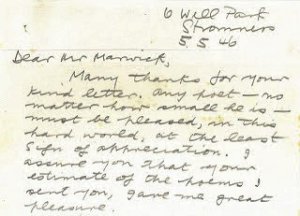 6 Well Park
Stromness
5 5 46
Dear Mr Marwick,
Many thanks for your
kind letter. Any poet — no
matter how small he is —
must be pleased, in this
hard world, at the least
sign of appreciation. I
assure you that your
estimate of the poems I
sent you, gave me great
pleasure.